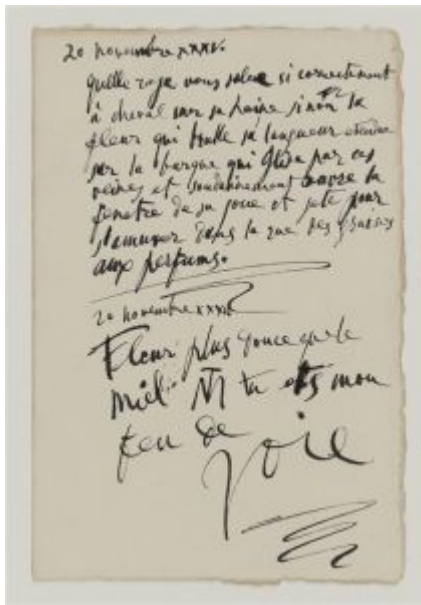 20 novembre XXXV.
quelle rage vous salue si correctement
à cheval sur sa haine sinon la
fleur qui brulle sa langueur etendue
sur la barque qui glisse par ces
veines et soudainement ouvre la
fenetre de sa joue et jete pour
s'amuser dans la rue des
aux perfums.
20 novembre XXXV
Fleur plus douce que le
miel MT tu ets mon
feu de
joie